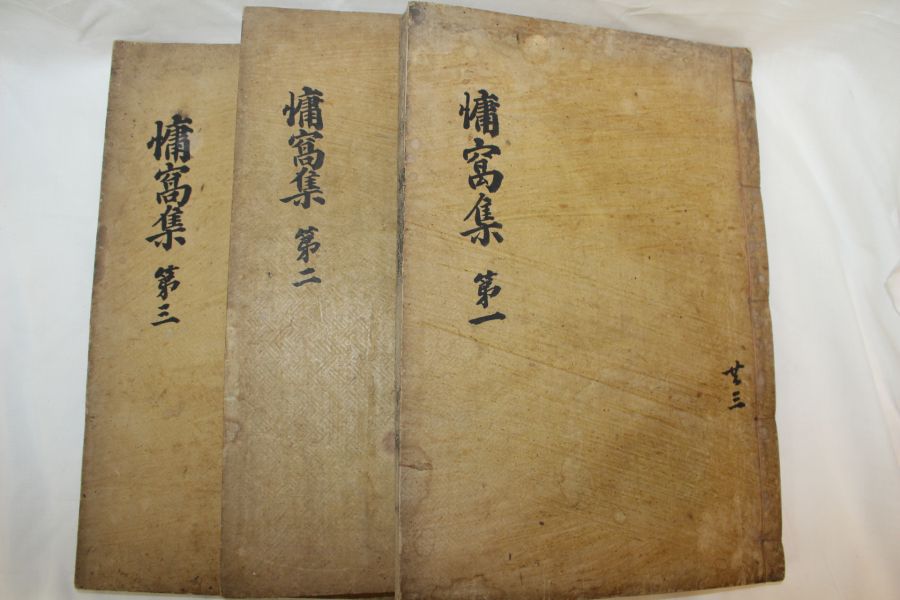 慵窩集 第一
共三
慵窩集 第二
慵窩集 第三